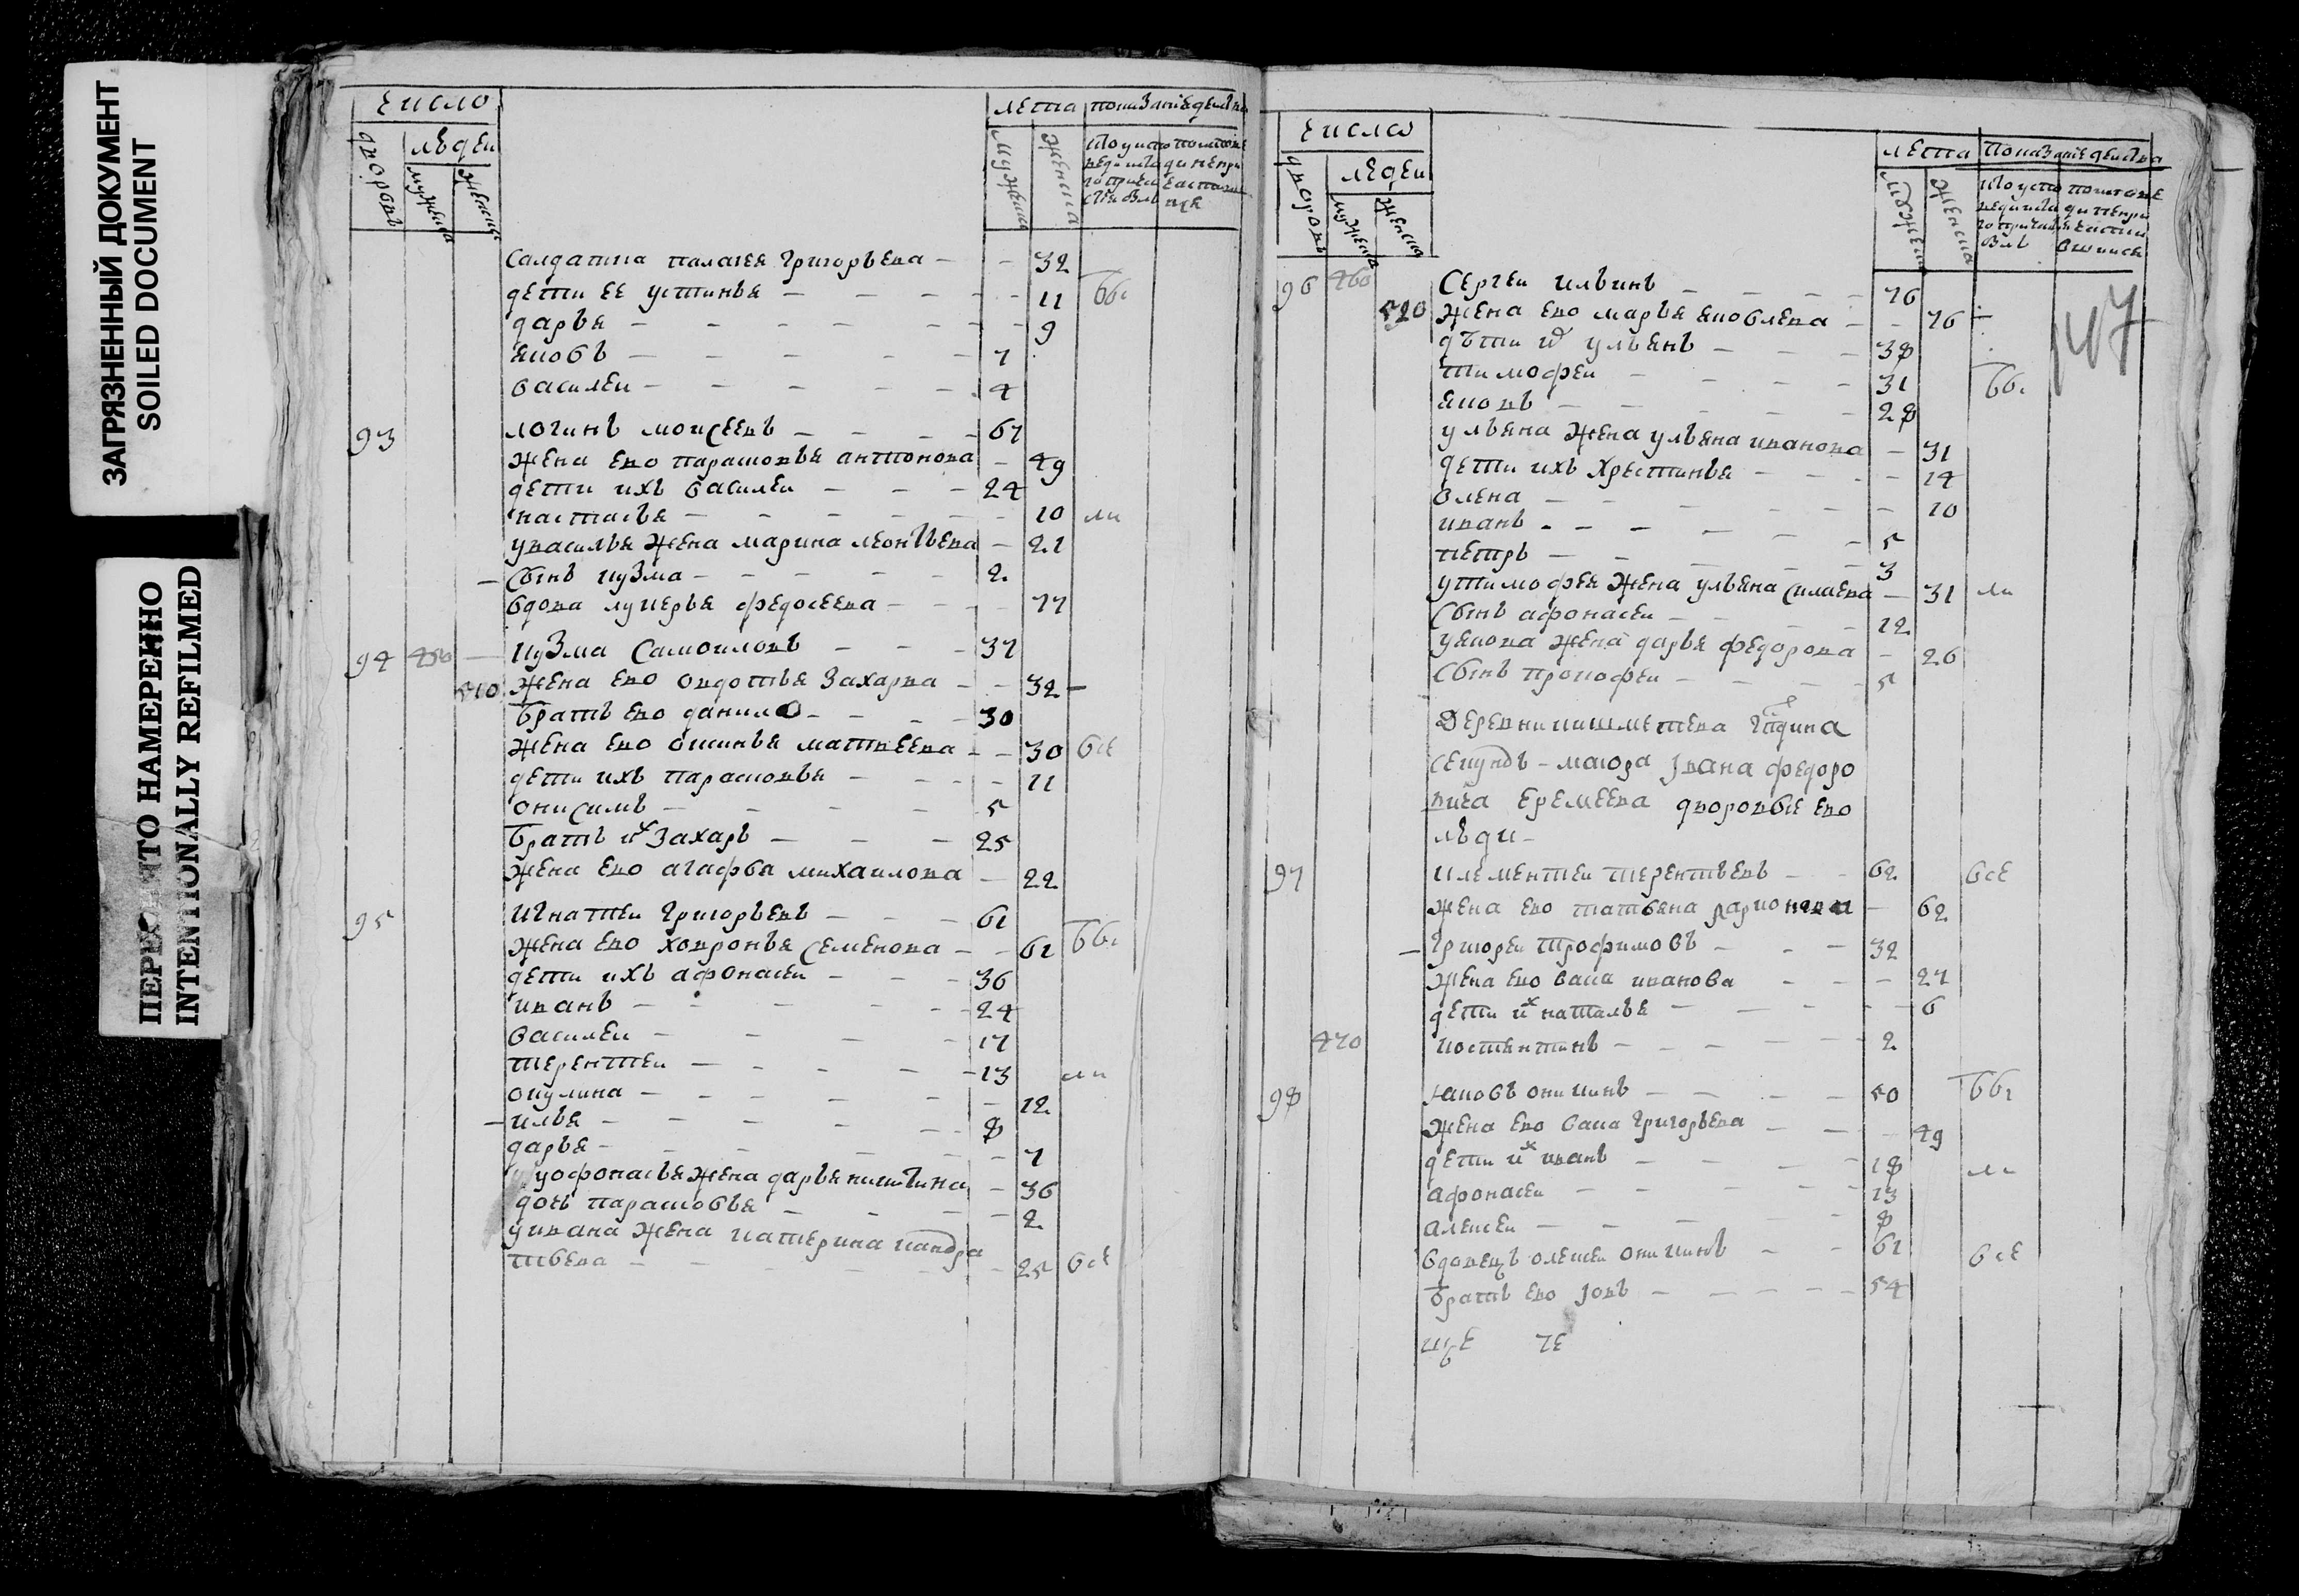 ЗАГРЯЗНЕННЫЙ ДОКУМЕНТ
SOILED DOCUMENT
INTENTIONALLY REFILMED
число
дворовъ
людей
мужеска
женска
лета
мужеска
женска
салдатка палагея григорьева 32
дети ее устинья 11
дарья 9
яковъ 7
василеи 4
93 логинъ моисеевъ 67
жена ево парасковья антонова 49
дети ихъ василеи 24
настасья 10
у василья жена марина леонтьева 21
сынъ кузма 2
вдова лукерья федосеева 77
94 кузма самоиловъ 37
510 жена ево овдотья захарва 32
братъ ево данило 30
жена ево ксинья матвеева 30 все
дети ихъ парасковья 11
онисимъ 5
братъ их захаръ 25
жена ево агафья михаилова 22
95 игнатеи григорьевъ 61
жена ево ховронья семенова 61
дети ихъ афонасеи 36
иванъ 24
василеи 17
терентеи 13
окулина 12
илья 8
дарья 7
у офонасья жена дарья никитина 36
дочь парасковья 2
у ивана жена катерина кандра
тьева 25 все
число
дворовъ
людей
мужеска
женска
лета
мужеска
женска
147
96 460 сергеи ильинъ 76
520 жена ево марья яковлева 76
дѣти их ульянъ 38
тимофеи 31
яковъ 28
у ульяна жена ульяна иванова 31
дети ихъ христинья 14
олена 10
иванъ 5
петръ 3
у тимофея жена ульяна силаева 31
сынъ афонасеи 12
у якова жена дарья федорова 26
сынъ прокофеи 5
деревни кишметева гпдина
секундъ-маиора ивана федоро
вича еремеева дворовые ево
люди
97 клементеи терентьевъ 62 все
жена ево татьяна ларионова 62
григореи трофимовъ 32
жена ево васа иванова 27
дети их наталья 6
470 костентинъ 2
98 яковъ оникинъ 50
жена ево васа григорьева 49
дети их иванъ 18
афонасеи 13
алексеи 8
вдовецъ олексеи оникинъ 61 все
братъ ево иовъ 54